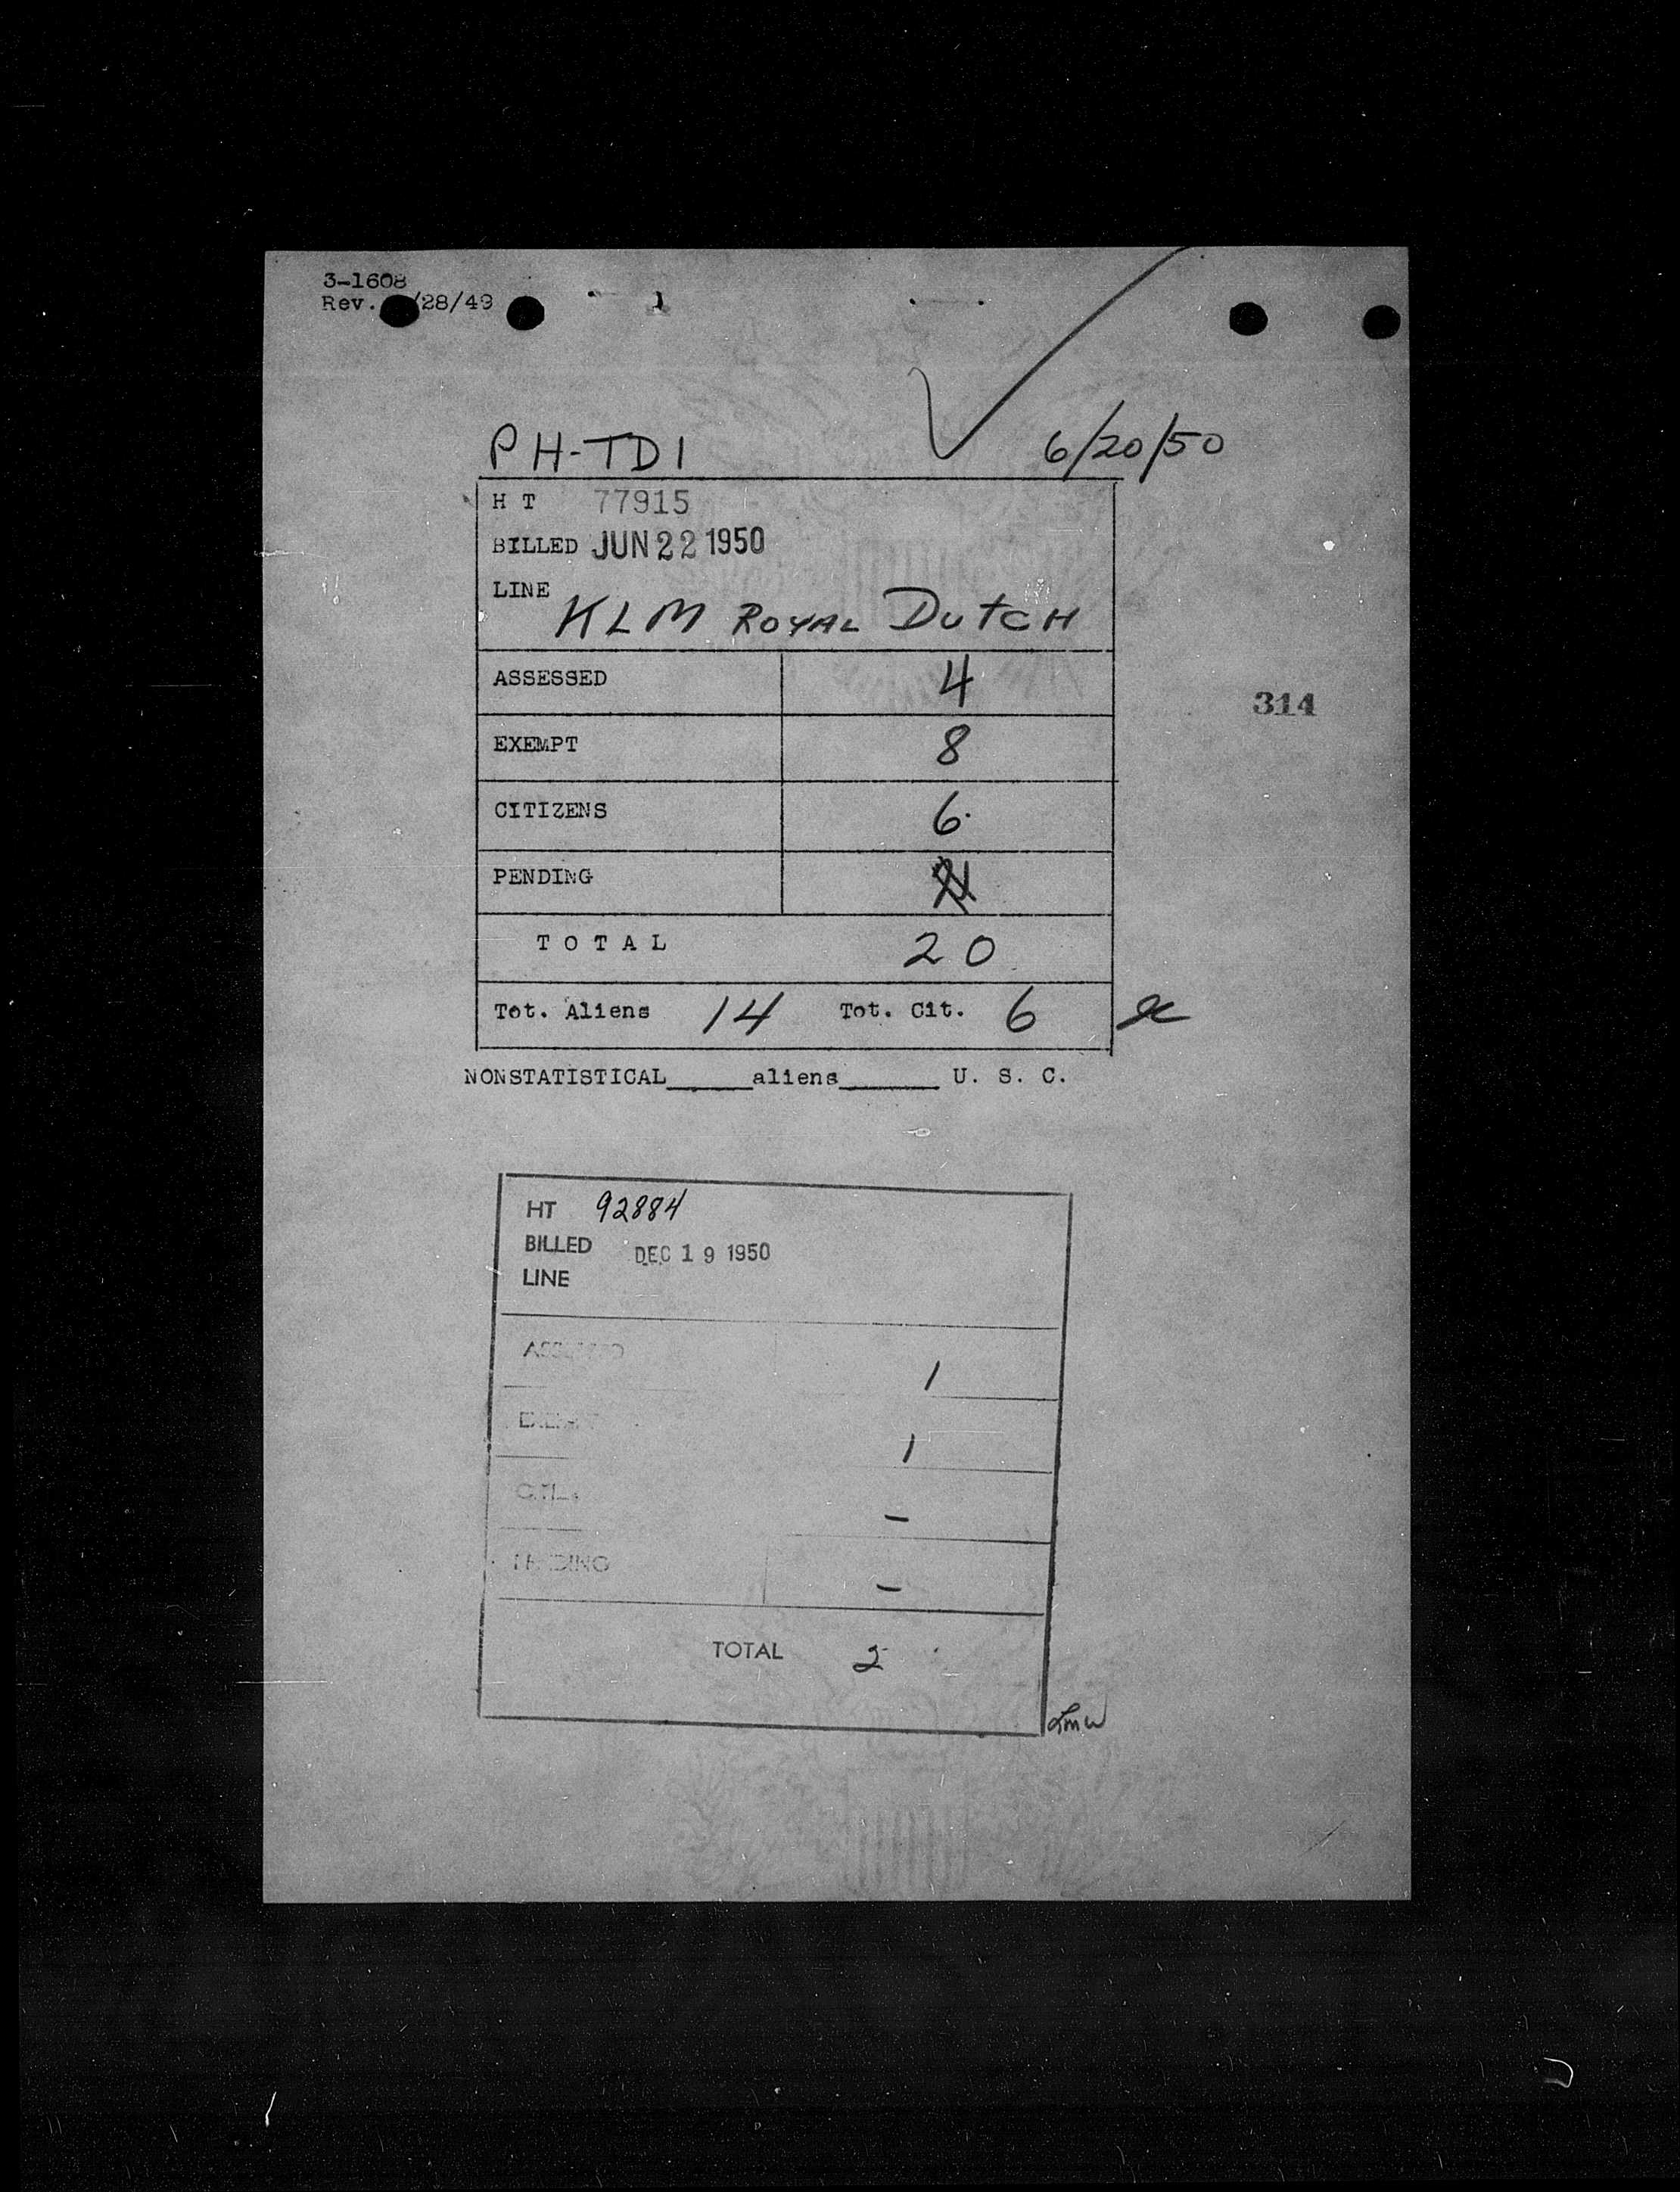 3-1608
Rev. /28/49
PH-TDI 6/20/50
H T 77915
BILLED JUN 22 1950
LINE
KLM ROYAL DUTCH
ASSESSED 4
314
EXEMPT 8
CITIZENS 6
PENDING
T O T A L 20
Tot. Aliens 14 Tot. Cit. 6
NONSTATISTICAL_____aliens______ U. S. C.
HT 92884
BILLED DEC 19 1950
LINE
ASSESSED 1
1
-
PENDING -
TOTAL 2
LMW